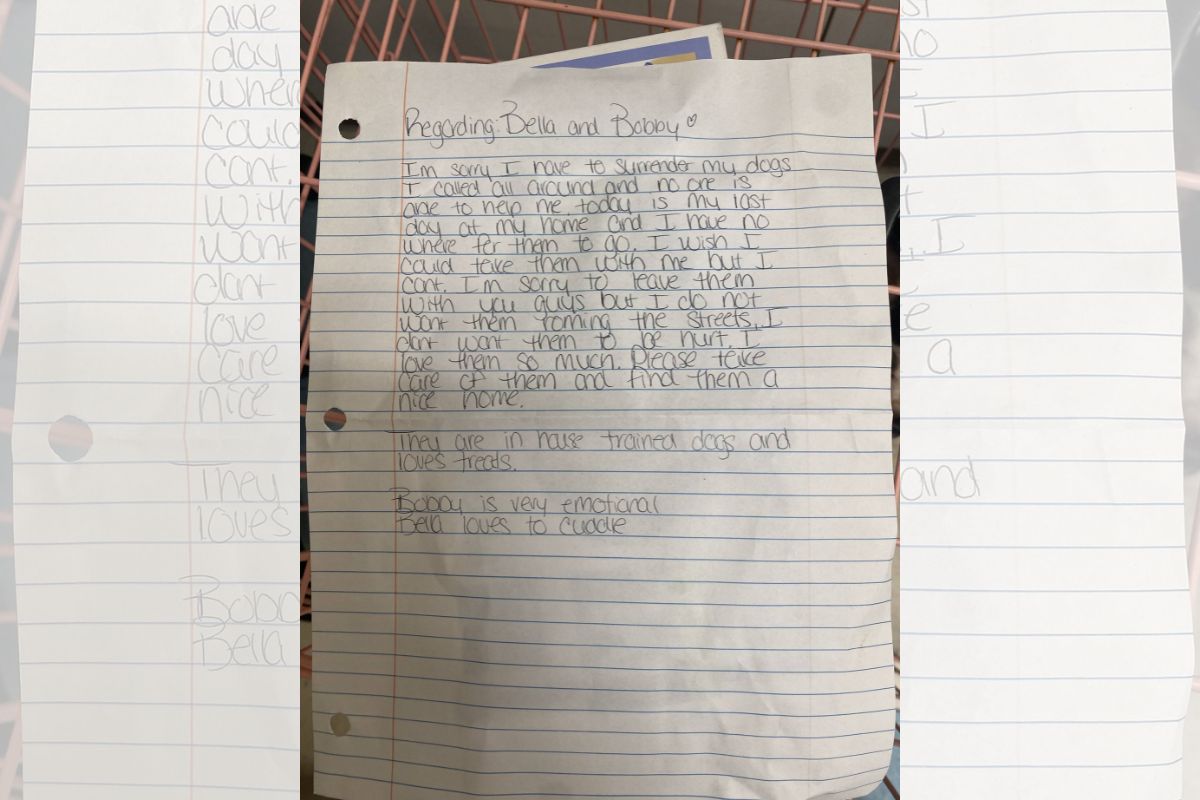 Regarding: Bella and Bobby ♡
I'm sorry I have to surrender my dogs
I called all around and no one is
able to help me. today is my last
day at my home and I have no
where for them to go. I wish I
could take them with me but I
cant. I'm sorry to leave them
with you guys but I do not
want them roming the streets, I
dont want them to be hurt. I
love them so much. Please take
care of them and find them a
nice home.
They are in house trained dogs and
loves treats.
Bobby is very emotional
Bella loves to cuddle